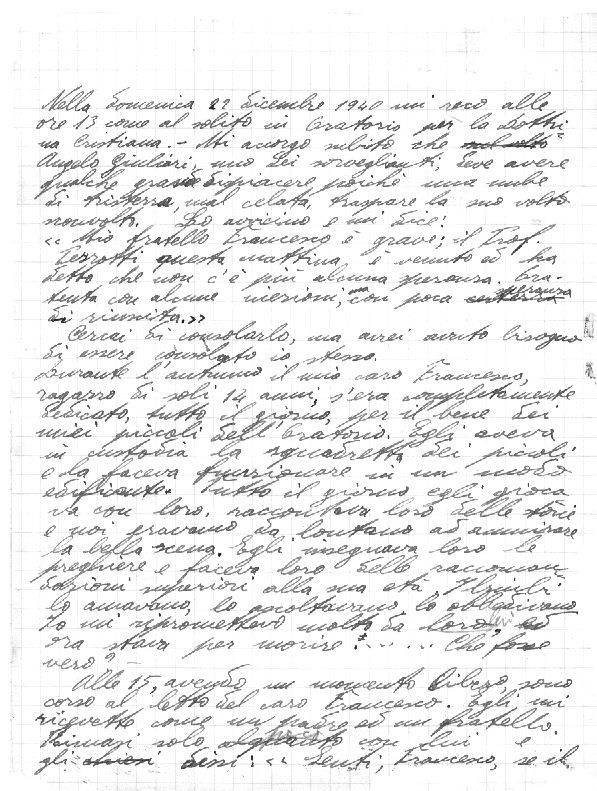 Nella domenica 22 dicembre 1940 mi reco alle
ore 13 come al solito in Oratorio per la Dottri
na Cristiana. - Mi accorgo subito che
Angelo Giuliari, uno dei sorveglianti, deve avere
qualche grande dispiacere poichè una nube
di tristezza, mal celata, traspare la suo volto
sconvolto. Lo avvicino e mi dice:
<< Mio fratello Francesco è grave; il Prof.
questa mattina, è venuto ed ha
detto che non c'è più alcuna speranza. Ora
tenta con alcune iniezioni, ma con poca speranza
di riuscita. >>
Cercai di consolarlo, ma avrei avuto bisogno
di essere consolato io stesso.
Durante l'autunno il mio caro Francesco,
ragazzo di soli 14 anni, s'era completamente
dedicato, tutto il giorno, per il bene dei
miei piccoli dell'Oratorio. Egli aveva
in custodia la squadretta dei piccoli
e la faceva funzionare in un modo
edificante. Tutto il giorno egli gioca
va con loro, raccontava loro delle storie
e noi eravamo da lontano ad ammirare
la bella scena. Egli insegnava loro le
preghiere e faceva loro delle raccoman
dazioni superiori alla sua età.
lo amavano, lo ascoltavano, lo obbedivano.
Io mi ripromettevo molto da lui ed
ora stava per morire!...... Che fosse
vero? -
Alle 15, avendo un momento libero, sono
corso al letto del caro Francesco. Egli mi
ricevette come un padre ed un fratello.
Rimasi solo con lui e
gli dissi: << Senti, Francesco, se il